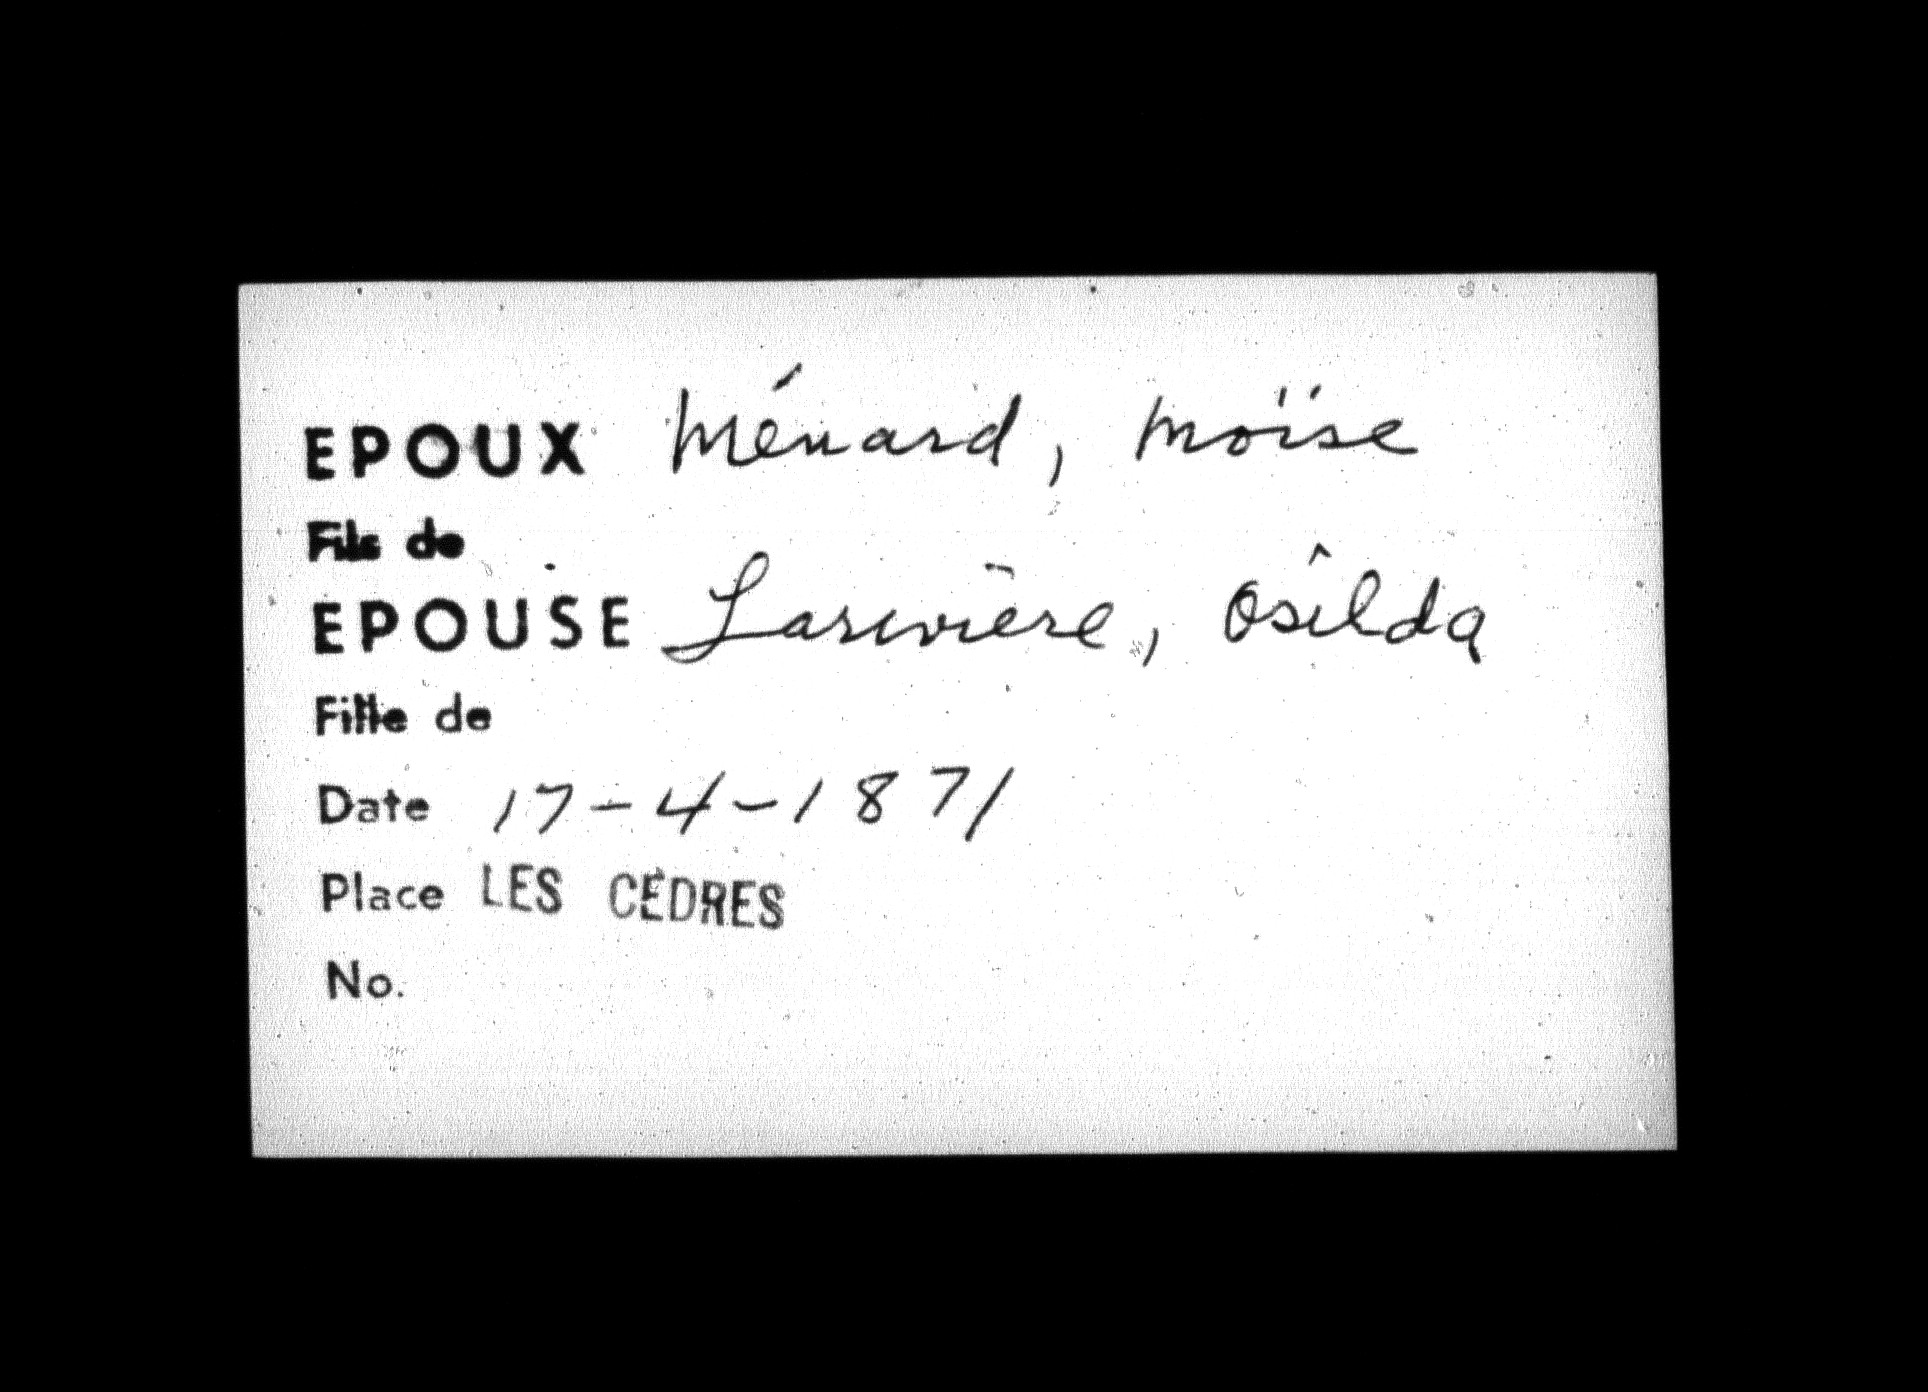 EPOUX Ménard, Moïse
Fils de
EPOUSE Larivière, Osîlda
Fille de
Date 17-4-1871
Place LES CÈDRES
No.